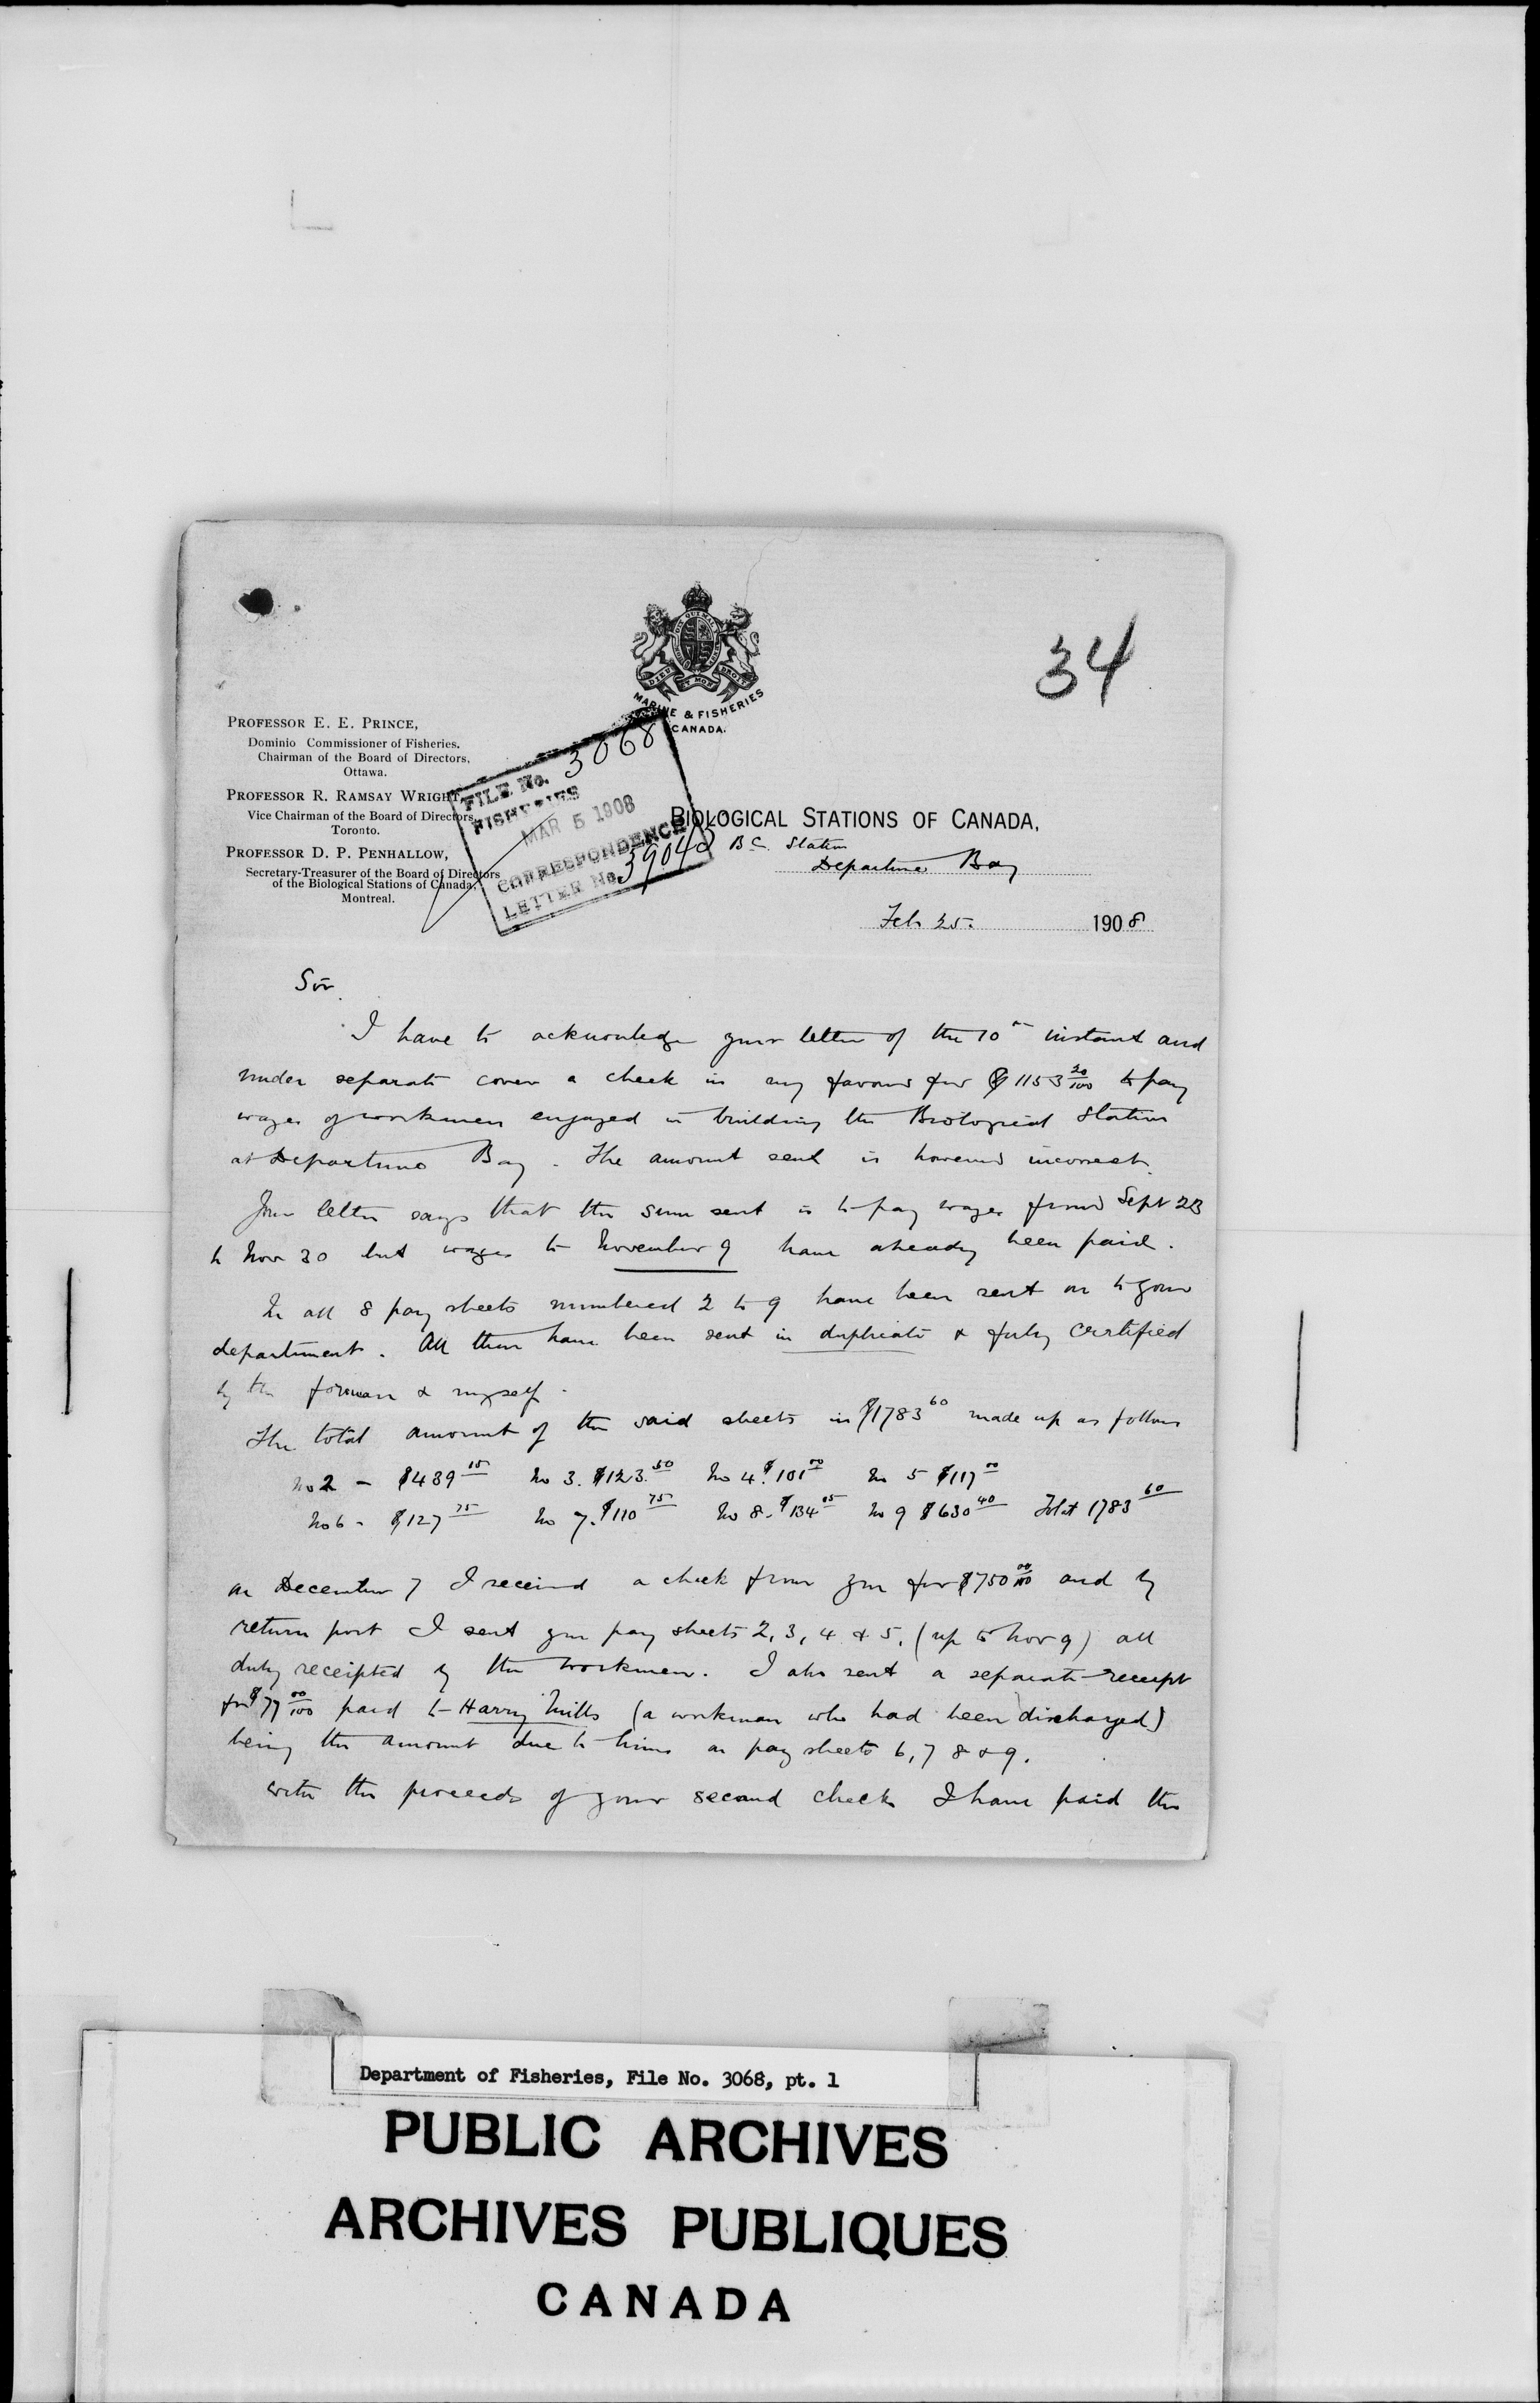 34
MARINE & FISHERIES
CANADA.
PROFESSOR E. E. PRINCE,
Dominio Commissioner of Fisheries.
Chairman of the Board of Directors,
Ottawa.
PROFESSOR R. RAMSAY WRIGHT,
Vice Chairman of the Board of Directors,
Toronto.
PROFESSOR D. P. PENHALLOW,
Secretary-Treasurer of the Board of Directors
of the Biological Stations of Canada,
Montreal.
FILE No. 3068
FISHERIES
MAR 5 1908
CORRESPONDENCE
LETTER No. 39048
BIOLOGICAL STATIONS OF CANADA,
B C. Station
Departure Bay
Feb 25. 1908
Sir
I have to acknowledge your letter of the 10th instant and
under separate cover a check in my favour for $1153 20/100 to pay
wages of workmen engaged in building the Biological Station
at Departure Bay. The amount sent is however incorrect.
Your letter says that the sum sent is to pay wages from Sept 23
to Nov 30 but wages to November 9 have already been paid.
In all 8 pay sheets numbered 2 to 9 have been sent on to your
department. All these have been sent in duplicate & fully certified
by the foreman & myself.
The total amount of the said sheets is $1783 60 made up as follows
No 2 - $439 15 No 3. $123.50 No 4. $101 00 No 5 $117 00
No 6 - $127 75 No 7. $110 75 No 8. $134 05 No 9 $630 40 Total 1783 60
On December 7 I received a check from you for $750 00/100 and by
return post I sent you pay sheets 2, 3, 4 & 5, (up to Nov 9) all
duly receipted by the workmen. I also sent a separate receipt
for $77 00/100 paid to Harry Mills (a workman who had been discharged)
being the amount due to him on pay sheets 6, 7 8 & 9.
With the proceeds of your second check I have paid the
Department of Fisheries, File No. 3068, pt. 1
PUBLIC ARCHIVES
ARCHIVES PUBLIQUES
CANADA